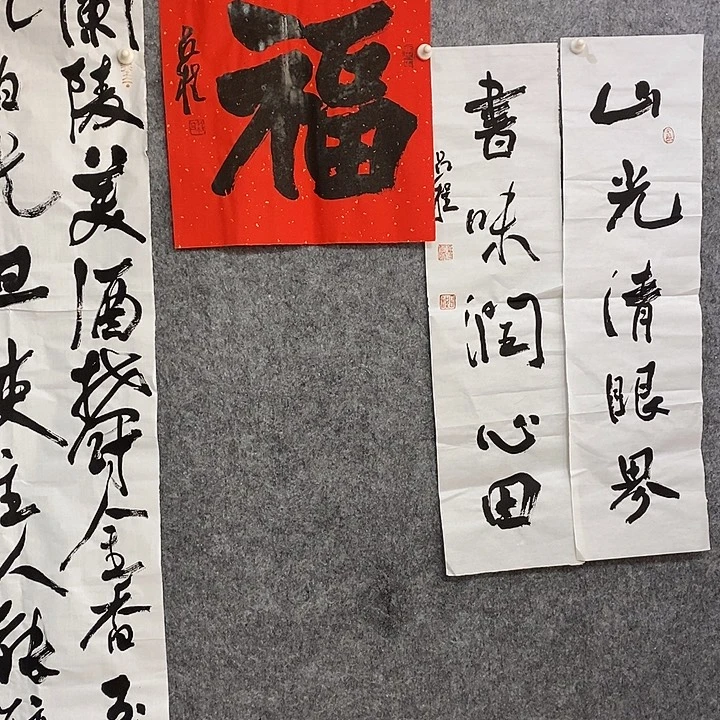 山光清眼界
書味潤心田
吕程
福
吕程
蘭陵美酒鬱金香玉
珀光但使主人能